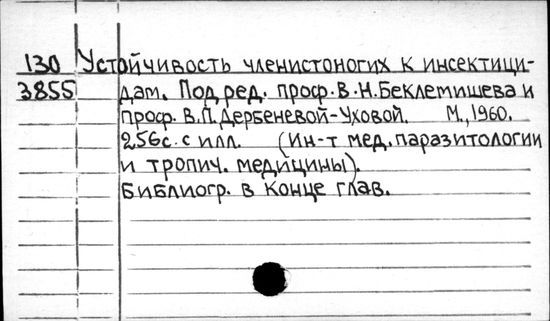 130 Устойчивость членистоногих к инсектици-
3855 дам. Под ред. проф. В.Н.Беклемишева и
проф. В.П.Дербеневой-Уховой. М., 1960.
256с. с илл. (Ин-т мед. паразитологии
и тропич. медицины).
Библиогр. в конце глав.